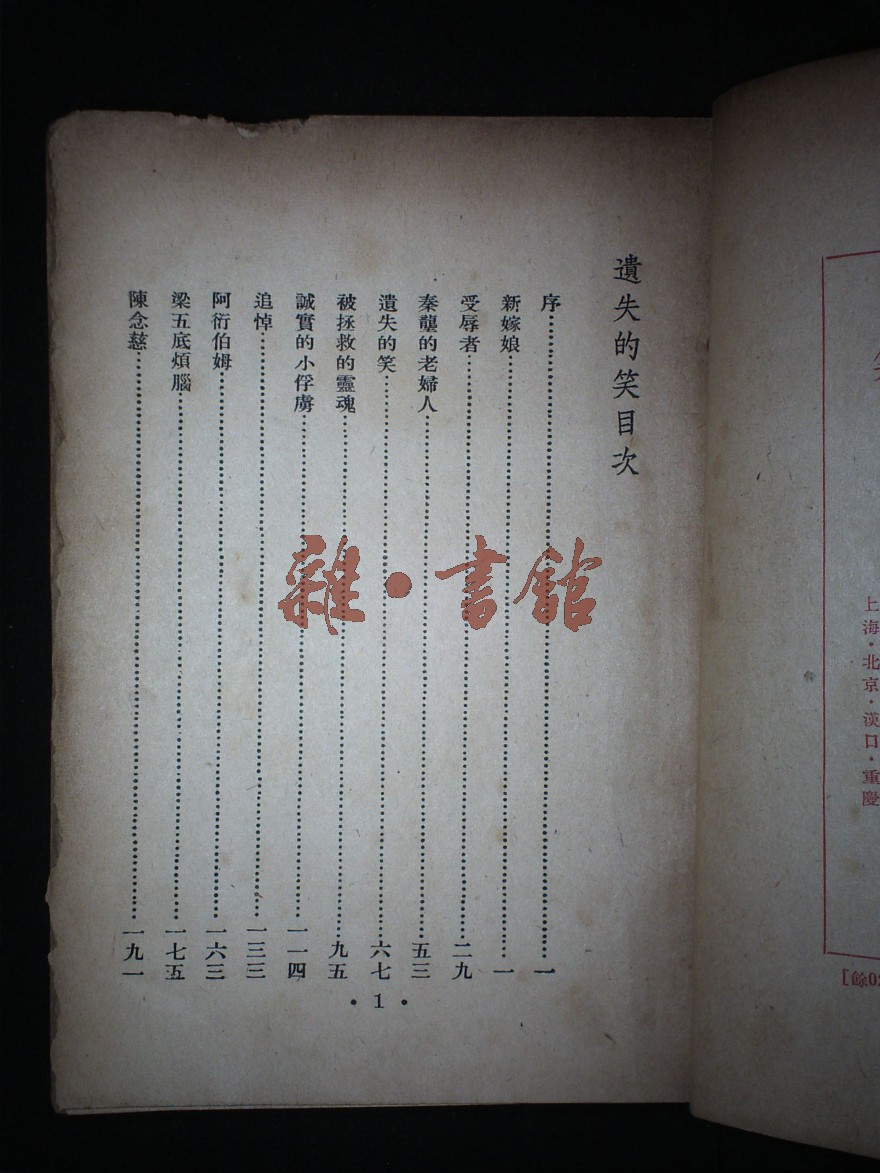 遺失的笑目次
序 一
新嫁娘 一
受辱者 二九
秦龔的老婦人 五三
遺失的笑 六七
被拯救的靈魂 九五
誠實的小俘虜 一一四
追悼 一三三
阿衍伯姆 一六三
梁五底煩腦 一七五
陳念慈 一九一
· 1 ·
雜·書館
上海·北京·漢口·重慶